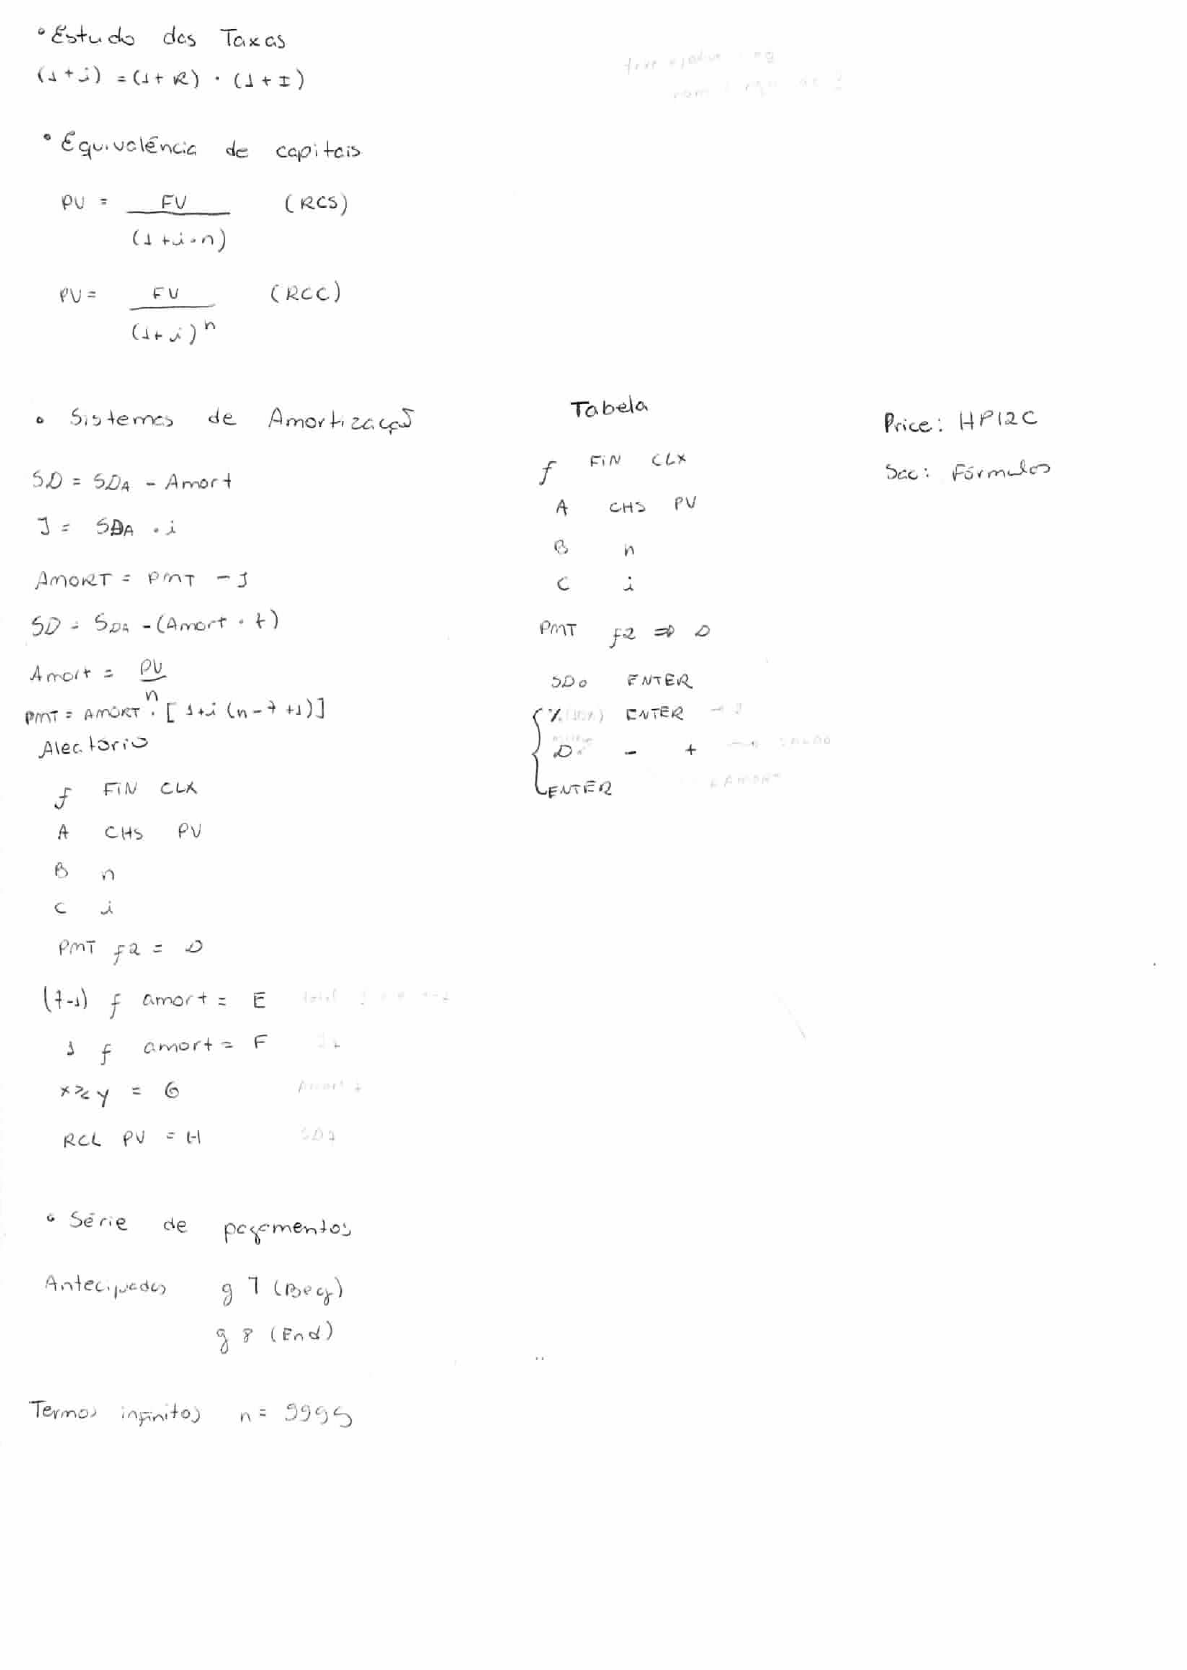 • Estudo das Taxas
(1+i) = (1+R) · (1+I)
• Equivalência de capitais
PV = FV (RCS)
(1+i·n)
PV = FV (RCC)
(1+i)^n
• Sistemas de Amortização
SD = SDA - Amort
J = SDA · i
AMORT = PMT - J
SD = SDA - (Amort · t)
Amort = PV
n
PMT = AMORT · [1+i (n-t+1)]
Aleatório
f FIN CLX
A CHS PV
B n
C i
PMT f2 = D
(t-1) f amort = E
1 f amort = F
x≷y = G
Amort t
RCL PV = H
Tabela
f FIN CLX
A CHS PV
B n
C i
PMT f2 ⇒ D
SDo ENTER
% ENTER
D - +
ENTER
Price: HP12C
Sac: Fórmulas
• Série de pagamentos
Antecipadas g 7 (Beg)
g 8 (End)
Termos infinitos n = 9999